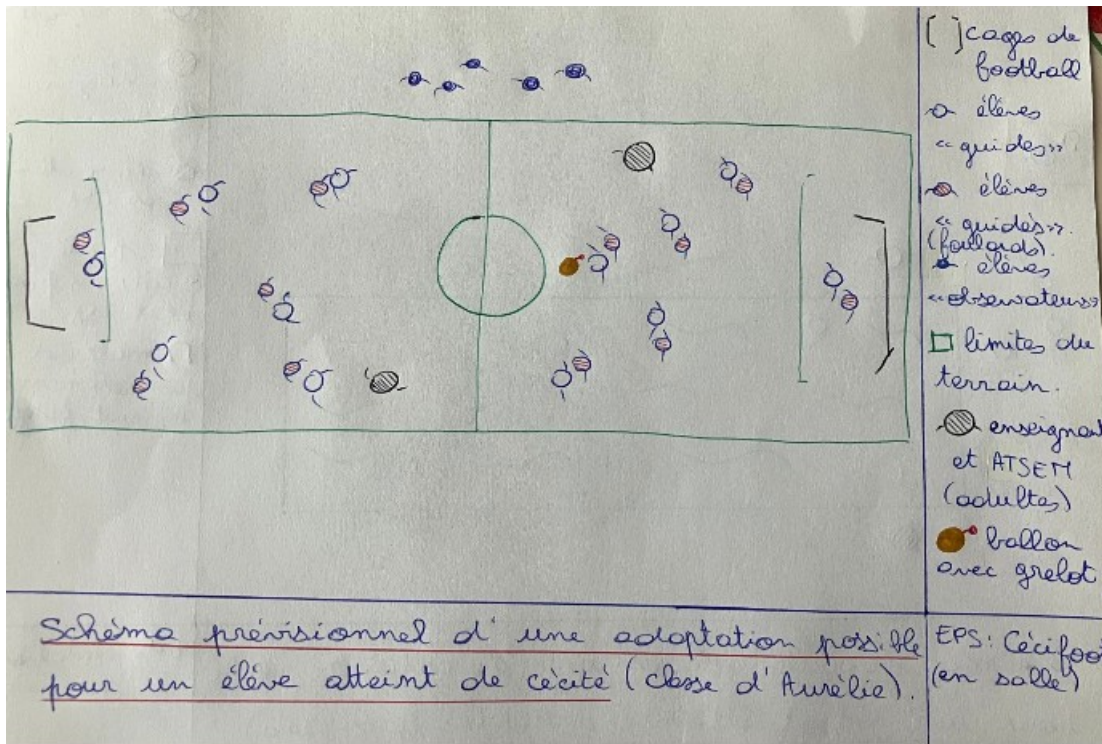 [ ] cages de
football
élèves
"guides"
élèves
"guidés".
(foulards).
élèves
"observateurs"
limites du
terrain.
enseignant
et ATSEM
(adultes)
ballon
avec grelot
Schéma prévisionnel d'une adaptation possible
pour un élève atteint de cécité (classe d'Aurélie).
EPS: Cécifoot
(en salle)